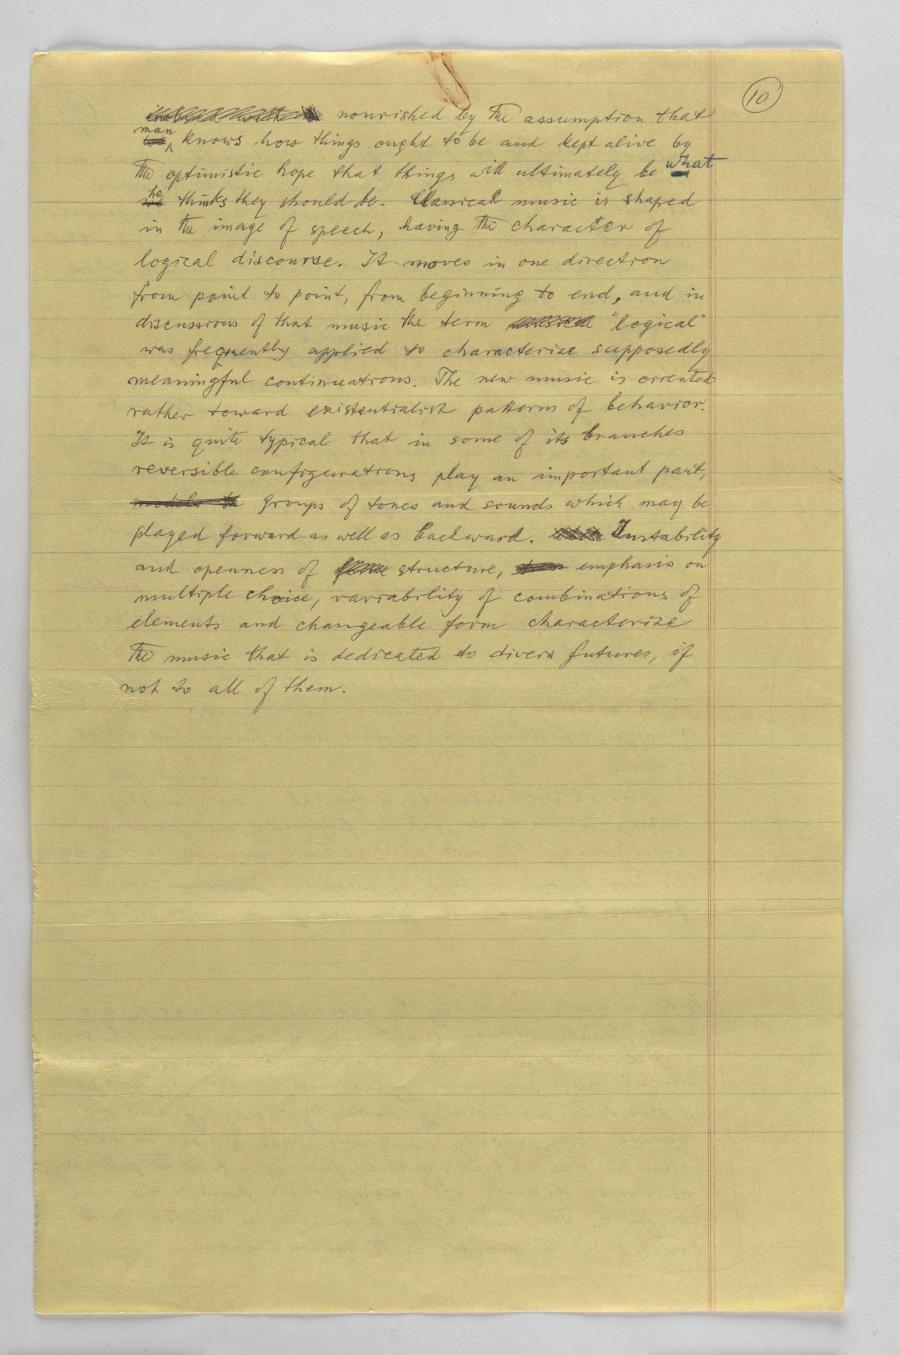 10
nourished by the assumption that
man knows how things ought to be and kept alive by
the optimistic hope that things will ultimately be what
he thinks they should be. Classical music is shaped
in the image of speech, having the character of
logical discourse. It moves in one direction
from point to point, from beginning to end, and in
discussions of that music the term "logical"
was frequently applied to characterize supposedly
meaningful continuations. The new music is oriented
rather toward existentialist patterns of behavior.
It is quite typical that in some of its branches
reversible configurations play an important part,
groups of tones and sounds which may be
played forward as well as backward. Instability
and openness of structure, emphasis on
multiple choice, variability of combinations of
elements and changeable form characterize
the music that is dedicated to divers futures, if
not to all of them.